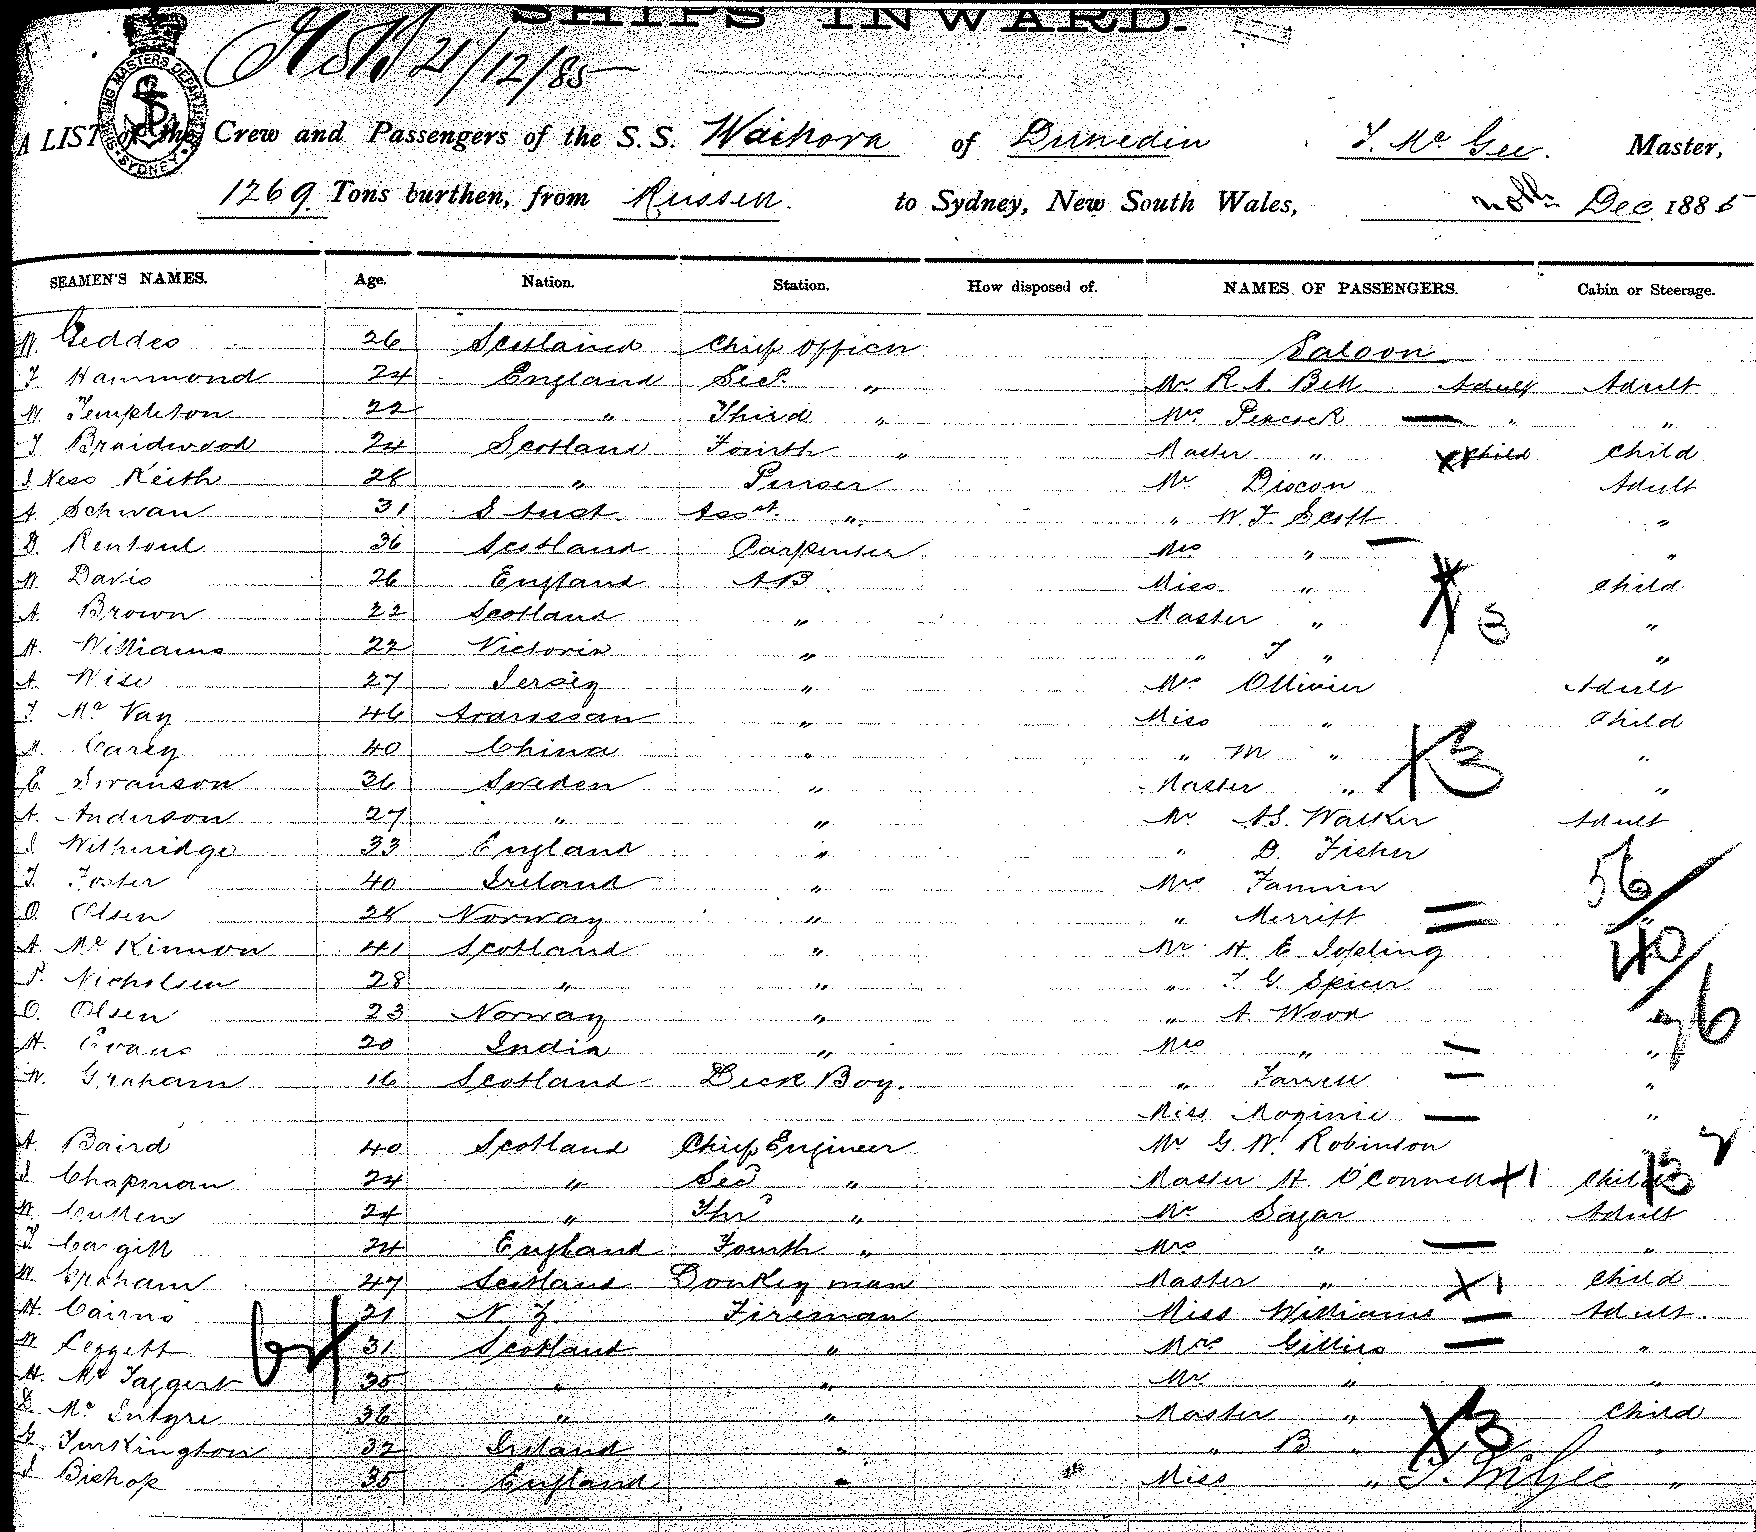 SHIPS INWARD.
21/12/85
SHIPPING MASTERS DEPARTMENT SYDNEY
A LIST of the Crew and Passengers of the S.S. Waihora of Dunedin J. Mc Gee. Master,
1269 Tons burthen, from Russell. to Sydney, New South Wales, Dec 1885
SEAMEN'S NAMES. Age. Nation. Station. How disposed of. NAMES OF PASSENGERS. Cabin or Steerage.
W. Geddes 26 Scotland Chief Officer Saloon
J. Hammond 24 England Secd. " Mr R. A. Bell Adult Adult
W. Templeton 22 " Third " Mrs Peacock " "
J. Braidwood 24 Scotland Fourth " Master " X1 Child Child
J Ness Keith 28 " Purser Mr Dixon Adult
A. Schwan 31 S Aust. Asst. " " W. J. Scott "
D. Rentoul 36 Scotland Carpenter Mrs " "
W. Davis 26 England AB Miss " Child
A. Brown 22 Scotland " Master " X 3 "
H. Williams 22 Victoria " " J " "
A. Wise 27 Jersey " Mrs Ollivier Adult
J. Mc Vay 46 " Miss " Child
Carey 40 China " " M " "
C. Swanson 36 Sweden " Master " X3 "
A. Anderson 27 " " Mr A.S. Walker Adult
J Witheridge 33 England " " D. Fisher
J. Foster 40 Ireland " Mrs Fannin 56/
O. Olsen 28 Norway " " Merritt "
A. Mc Kinnon 41 Scotland " Mr H. E. Jopling 40/
P. Nicholson 28 " " " J G. Spicer
O. Olsen 23 Norway " " A. Wood 76
H. Evans 20 India " Mrs " "
W. Graham 16 Scotland Deck Boy. " Farrell "
Miss Moginie "
A. Baird 40 Scotland Chief Engineer Mr G. W. Robinson
J. Chapman 24 " Secd " Master H. O'Connell X1 Child 13
W. Cullen 24 " Thrd " Mr Sagar Adult
J. Cargill 24 England Fourth " Mrs " "
W. Graham 47 Scotland Donkeyman Master " X1 Child
H. Cairns 21 N Z Fireman Miss Williams Adult.
W Leggett 31 Scotland " Mrs Gillies "
H. Mc Taggert 35 " " Mr " "
D. Mc Intyre 36 " " Master " Child
Turkington 32 Ireland " " B " X3 "
J. Bishop 35 England " Miss " J. McGee "